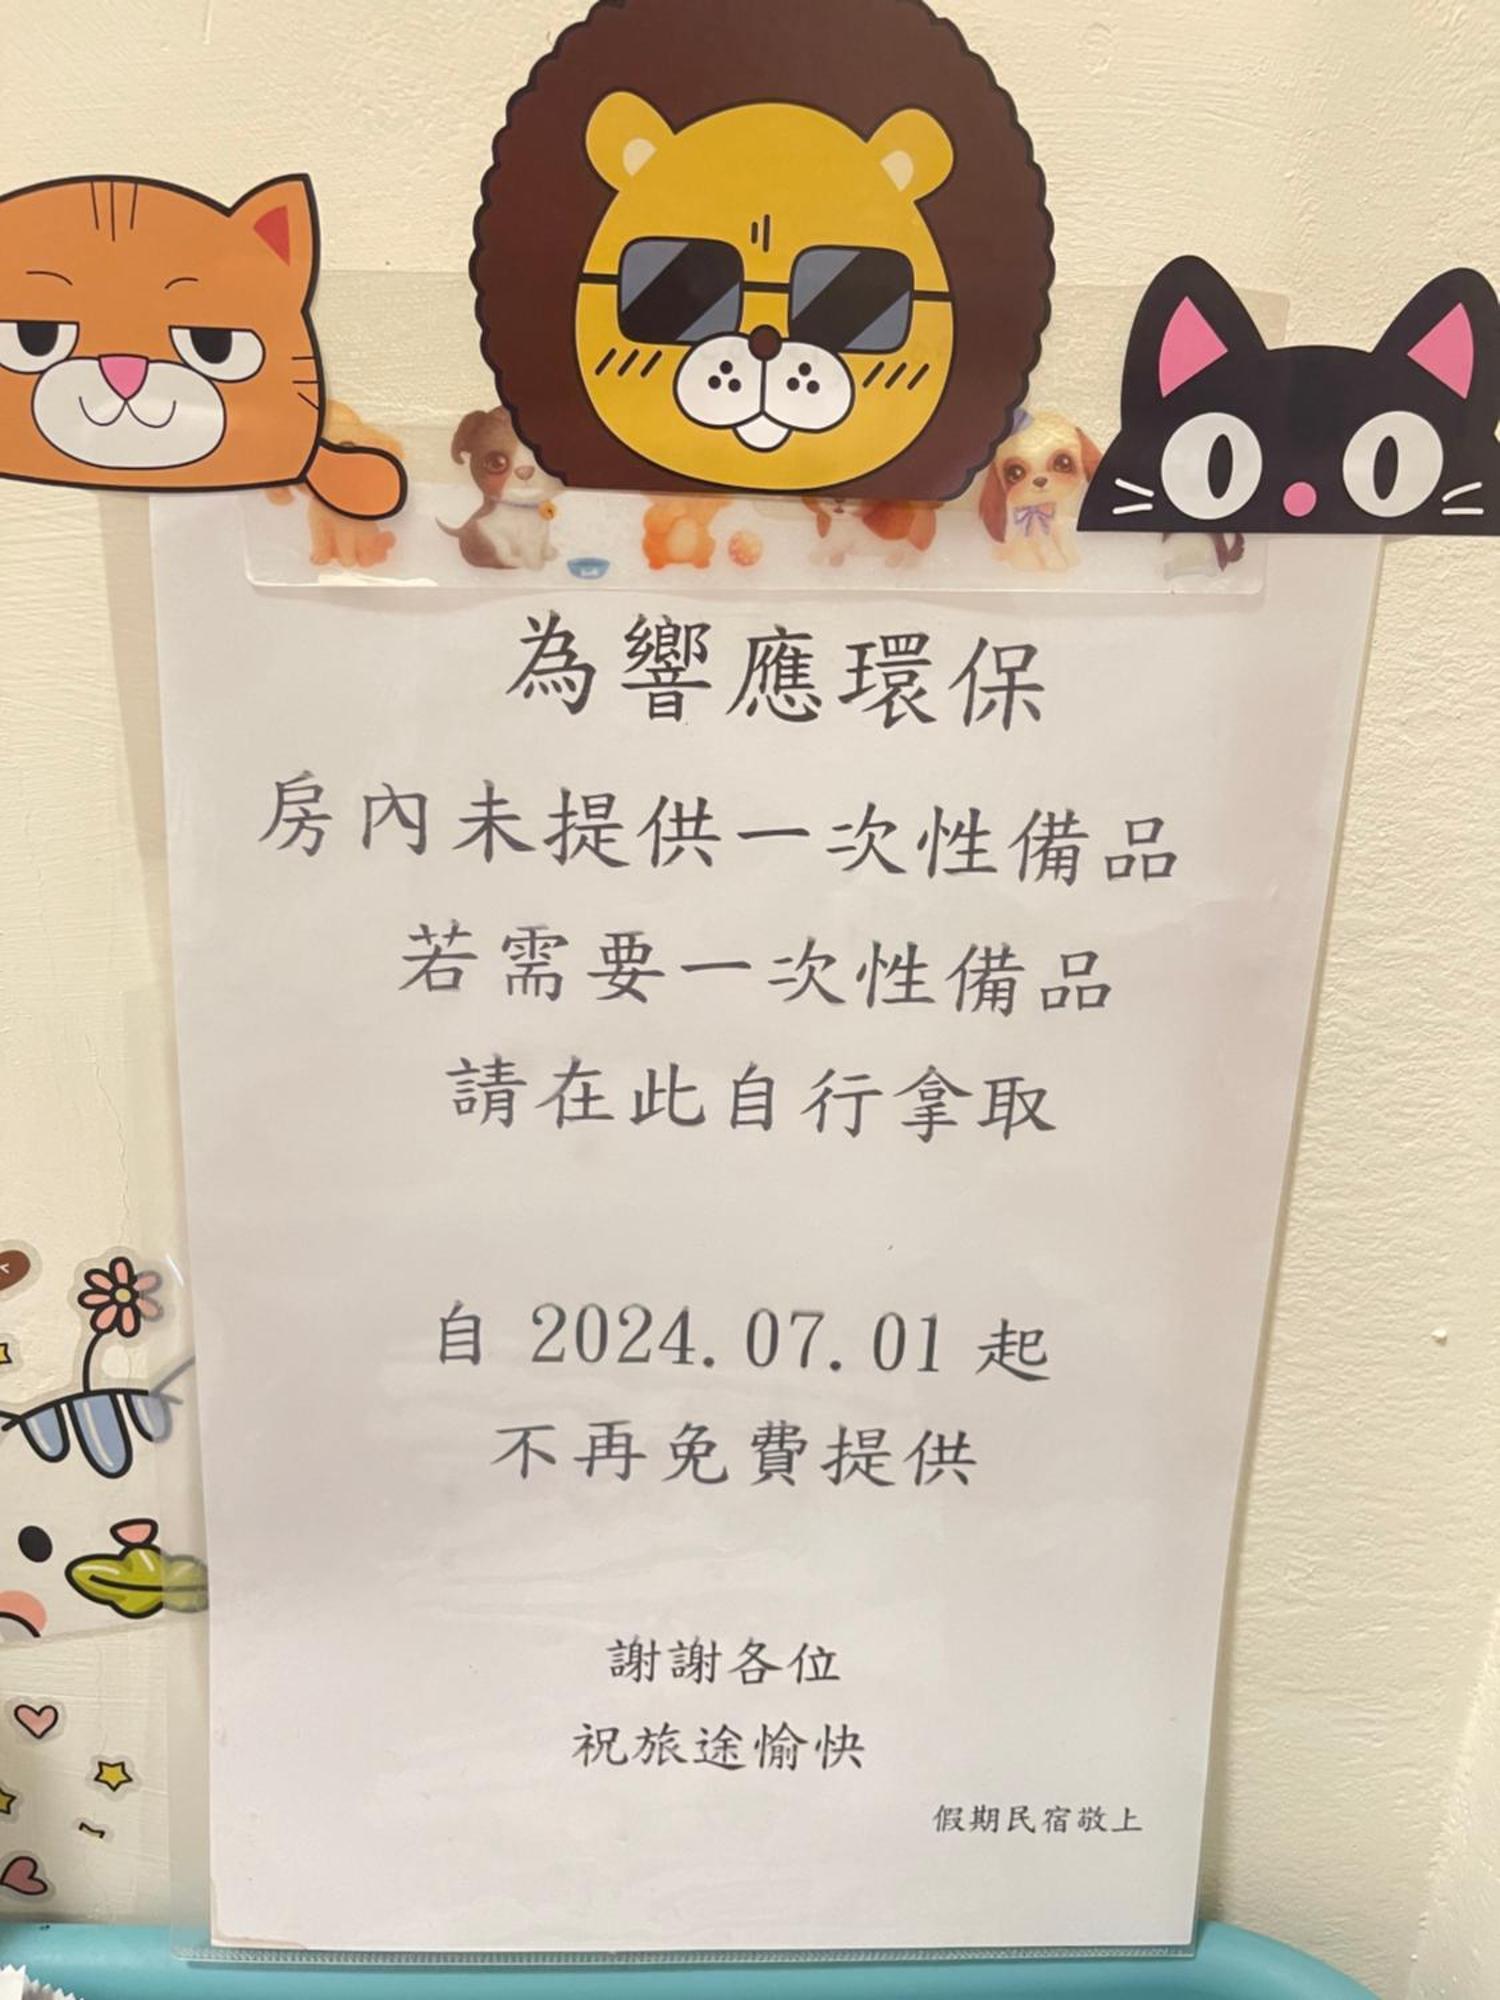 為響應環保
房內未提供一次性備品
若需要一次性備品
請在此自行拿取
自 2024.07.01 起
不再免費提供
謝謝各位
祝旅途愉快
假期民宿敬上